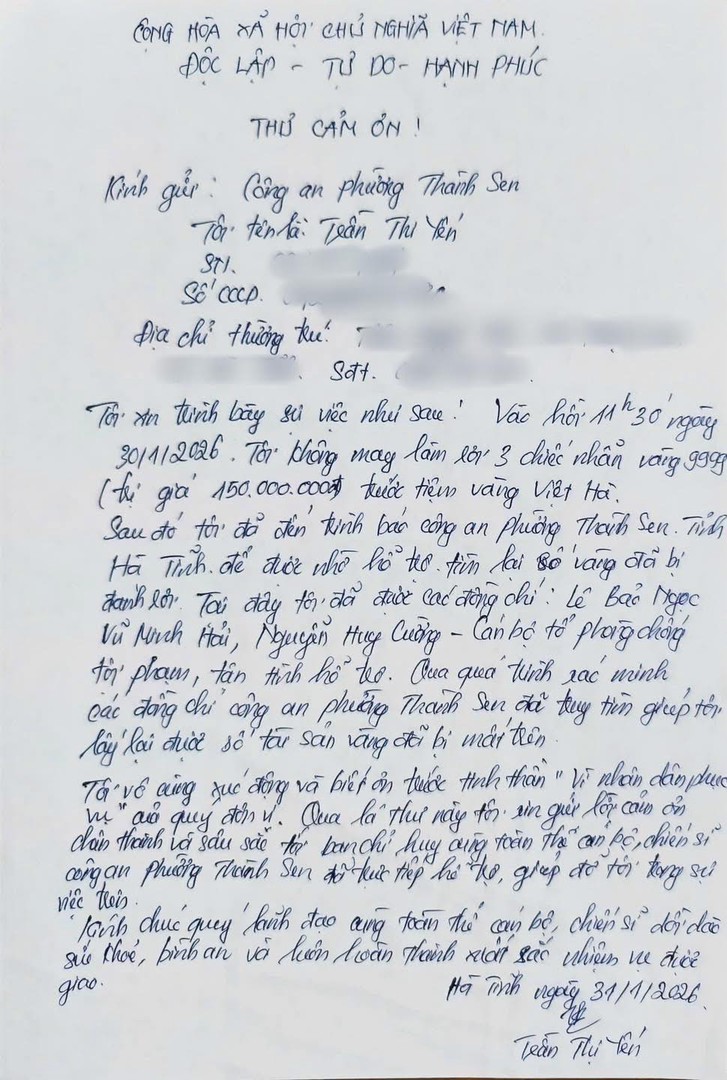 CỘNG HÒA XÃ HỘI CHỦ NGHĨA VIỆT NAM.
ĐỘC LẬP - TỰ DO - HẠNH PHÚC
THƯ CẢM ƠN !
Kính gửi : Công an phường Thành Sen
Tôi tên là: Trần Thị Yến
SN.
Số CCCD.
Địa chỉ thường trú:
Sđt.
Tôi xin trình bày sự việc như sau: Vào hồi 11h30' ngày
30/1/2026. Tôi không may làm rơi 3 chiếc nhẫn vàng 9999
(trị giá 150.000.000đ) trước tiệm vàng Việt Hà.
Sau đó tôi đã đến trình báo công an phường Thành Sen. Tỉnh
Hà Tĩnh. để được nhờ hổ trợ. tìm lại số vàng đã bị
đánh rơi. Tại đây tôi đã được các đồng chí: Lê Bảo Ngọc
Vũ Minh Hải, Nguyễn Huy Cường - Cán bộ tổ phòng chống
tội phạm, tận tình hổ trợ. Qua quá trình xác minh
các đồng chí công an phường Thành Sen đã truy tìm giúp tôi
lấy lại được số tài sản vàng đã bị mất trên.
Tôi vô cùng xúc động và biết ơn trước tinh thần "Vì nhân dân phục
vụ" của quý đơn vị. Qua lá thư này tôi xin gửi lời cảm ơn
chân thành và sâu sắc tới ban chỉ huy cùng toàn thể cán bộ, chiến sĩ
công an phường Thành Sen đã trực tiếp hổ trợ, giúp đỡ tôi trong sự
việc trên.
Kính chúc quý lãnh đạo cùng toàn thể cán bộ, chiến sĩ dồi dào
sức khoẻ, bình an và luôn hoàn thành xuất sắc nhiệm vụ được
giao.
Hà Tĩnh ngày 31/1/2026
Trần Thị Yến